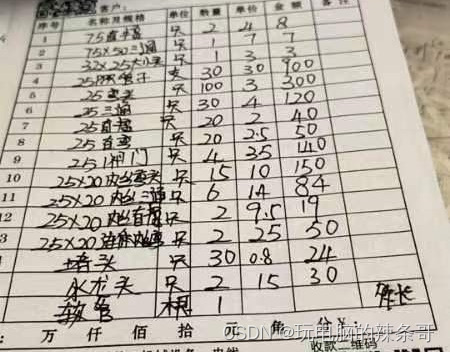 客户:
序号 名称及规格 单位 数量 单价 金额 备注
1 75直接 只 2 4 8
2 75×50三通 只 1 7 7
3 32×25大小头 只 1 3 3
4 25 管子 支 30 30 900
5 25弯头 只 100 3 300
6 25三通 只 30 4 120
7 25直接 只 20 2 40
8 25 弯 只 20 2.5 50
9 25阀门 只 4 35 140
10 25×20内丝弯头 只 15 10 150
11 25×20内丝三通 只 6 14 84
12 25×20内丝直接 只 2 9.5 19
3 25×20 内丝 只 2 25 50
堵头 只 30 0.8 24
水龙头 只 2 15 30
软管 根 1 长
: 万 仟 佰 拾 元 角 分 ¥:
收款二维码
CSDN @玩电脑的辣条哥